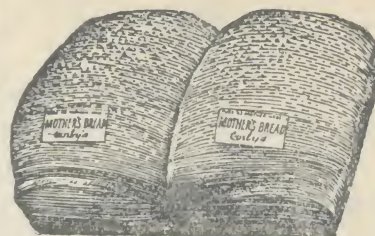 MOTHER'S BREAD
Corby's
MOTHER'S BREAD
Corby's